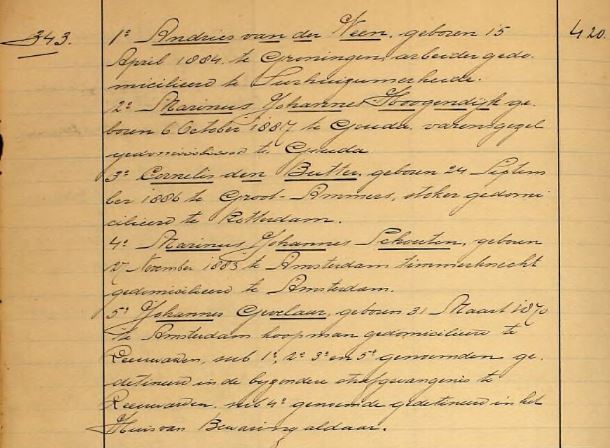 343. 1º Andries van der Veen, geboren 15 420.
April 1884 te Groningen, arbeider gedo-
micilieerd te Surhuizumerheide.
2º Marinus Johannes Hoogendijk ge-
boren 6 October 1887 te Gouda, varensgezel
gedomicilieerd te Gouda
3º Cornelis den Butter, geboren 24 Septem
ber 1886 te Groot-Ammers, stoker gedomi-
cilieerd te Rotterdam.
4º Marinus Johannes Schouten, geboren
November 1885 te Amsterdam timmerknecht
gedomicilieerd te Amsterdam.
5º Johannes Gevelaar, geboren 31 Maart 1870
te Amsterdam koopman gedomicilieerd te
Leeuwarden, sub 1º, 2º 3º en 5º genoemden ge-
detineerd in de byzondere strafgevangenis te
Leeuwarden, sub 4º genoemde gedetineerd in het
Huis van Bewaring aldaar.